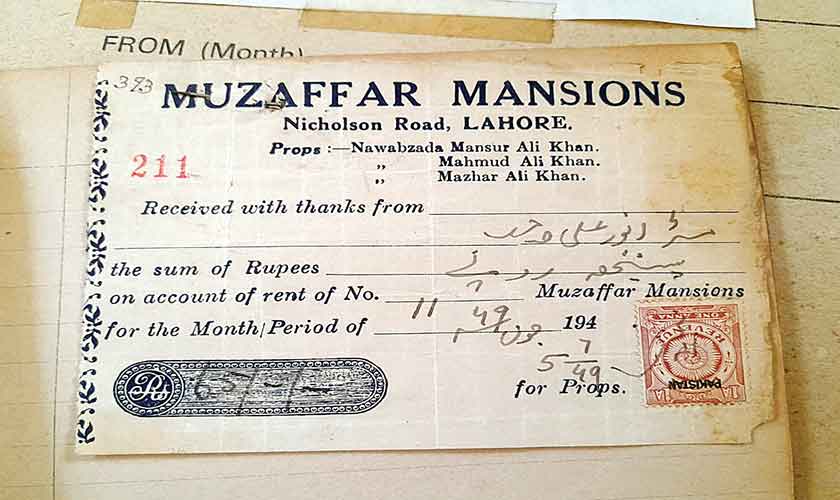 FROM (Month)
393
MUZAFFAR MANSIONS
Nicholson Road, LAHORE.
Props :—Nawabzada Mansur Ali Khan.
211 „ Mahmud Ali Khan.
„ Mazhar Ali Khan.
Received with thanks from
مسٹر انور علی صاحب
the sum of Rupees پینسٹھ روپے
on account of rent of No. 11 Muzaffar Mansions
for the Month/Period of جون 49 194
5 7/49
Rs 65/-/-
for Props.
ONE ANNA
REVENUE
PAKISTAN
1A 1A